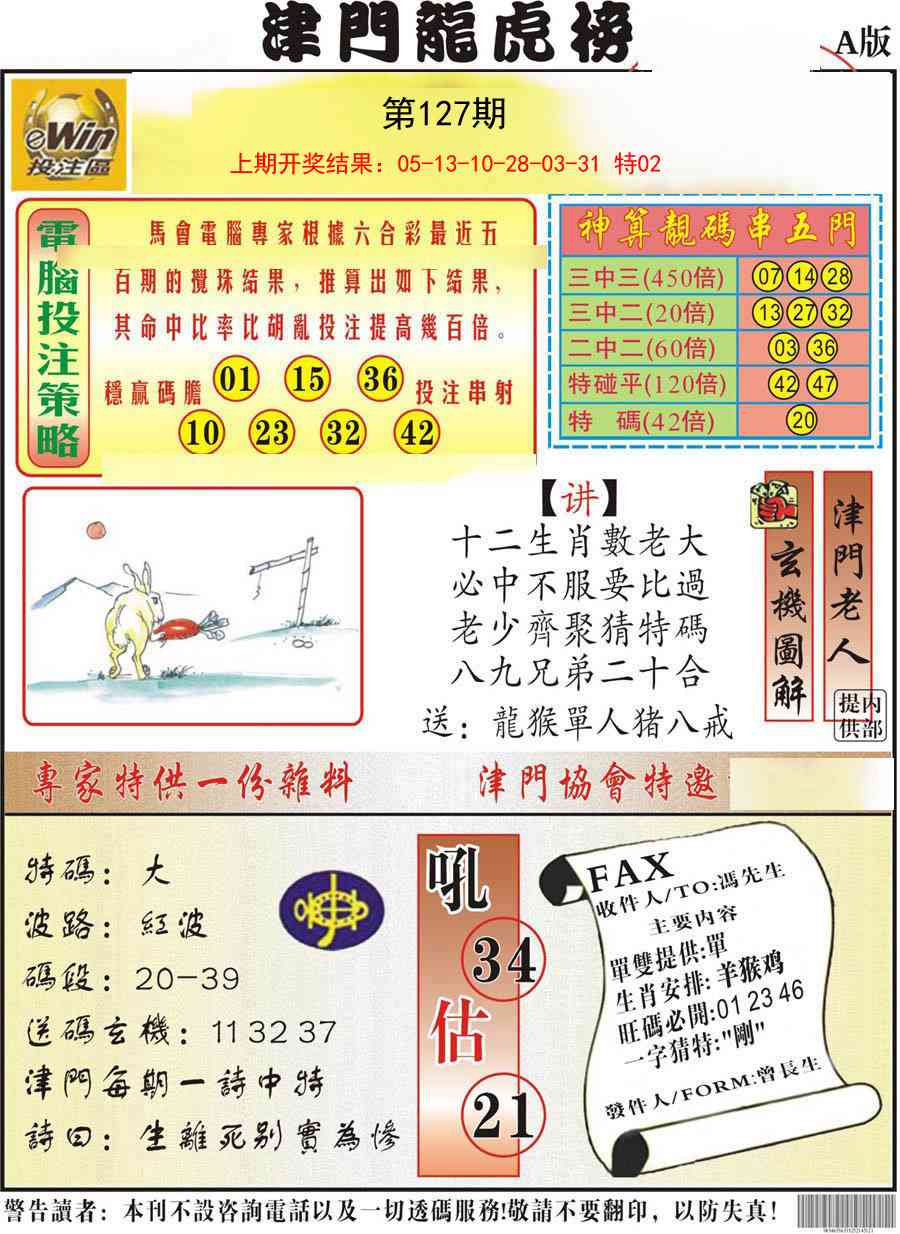 津門龍虎榜
A版
eWin
投注區
第127期
上期开奖结果：05-13-10-28-03-31 特02
電腦投注策略
馬會電腦專家根據六合彩最近五
百期的攪珠結果，推算出如下結果，
其命中比率比胡亂投注提高幾百倍。
穩贏碼膽 01 15 36 投注串射
10 23 32 42
神算靚碼串五門
三中三(450倍) 07 14 28
三中二(20倍) 13 27 32
二中二(60倍) 03 36
特碰平(120倍) 42 47
特 碼(42倍) 20
【讲】
十二生肖數老大
必中不服要比過
老少齊聚猜特碼
八九兄弟二十合
送：龍猴單人猪八戒
玄機圖解
津門老人
内部提供
專家特供一份雜料
津門協會特邀
特碼：大
波路：紅波
碼段：20-39
送碼玄機：11 32 37
津門每期一詩中特
詩曰：生離死别實為慘
吼
34
估
21
FAX
收件人/TO:馮先生
主要内容
單雙提供:單
生肖安排:羊猴鸡
旺碼必開:01 23 46
一字猜特:"剛"
發件人/FORM:曾長生
警告讀者：本刊不設咨詢電話以及一切透碼服務!敬請不要翻印，以防失真!